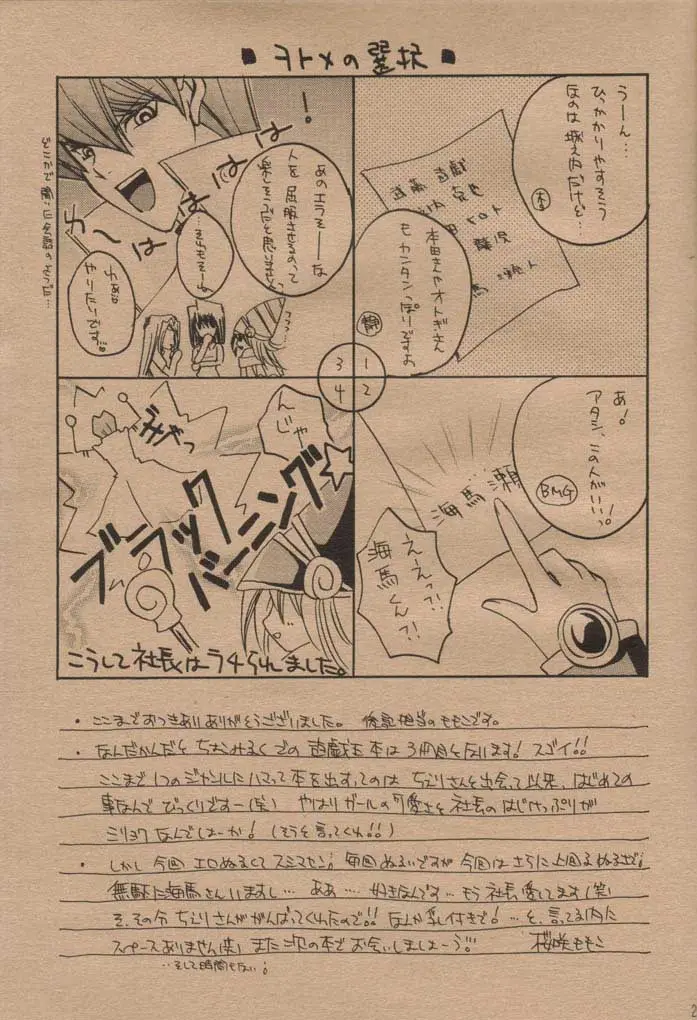 ■ ヲトメの選択 ■
うーん…
ひっかかりやすそう
なのは城之内だけど…
杏
武藤 遊戯
海馬 瀬人
本田さんやオトギさん
もカンタンっぽいですよ
静
1
2
3
4
あ!
アタシ、この人がいいっ。
BMG
海馬 瀬
えーえっ?!
海馬くん?!
わーはははは!
あのエラそーな
人を屈服させるのって
楽しそうだと思いません
…それもそーね
わぁ。
やりたいです。
んじゃ
ブラック
バーニング☆
こうして社長はラチられました。
・ここまでおつきあいありがとうございました。 後記担当のももこです。
・なんだかんだとちおみるくでの遊戯王本は3冊目を数います! スゴイ!!
ここまで1つのジャンルにハマって本を出すってのは ちぇりさんと出会って以来、はじめての
事なんで びっくりですー(笑) やはりガールの可愛さと社長のはじけっぷりが
ミリョクなんでしょーか! (そうを言ってくれ!!)
・しかし今回エロぬるくてスミマセン; 毎回ぬるいですが今回はさらに上回るぬるさで;
無駄に海馬さんいますし… ああ… 好きなんです… もう社長愛してます(笑)
そ、その分ちぇりさんががんばってくれたので!! なんか乳付きで! …と、言ってる内に
スペースありません(笑) また次の本でお会いしましょーう!! 桜咲ももこ
…そして時間もない;